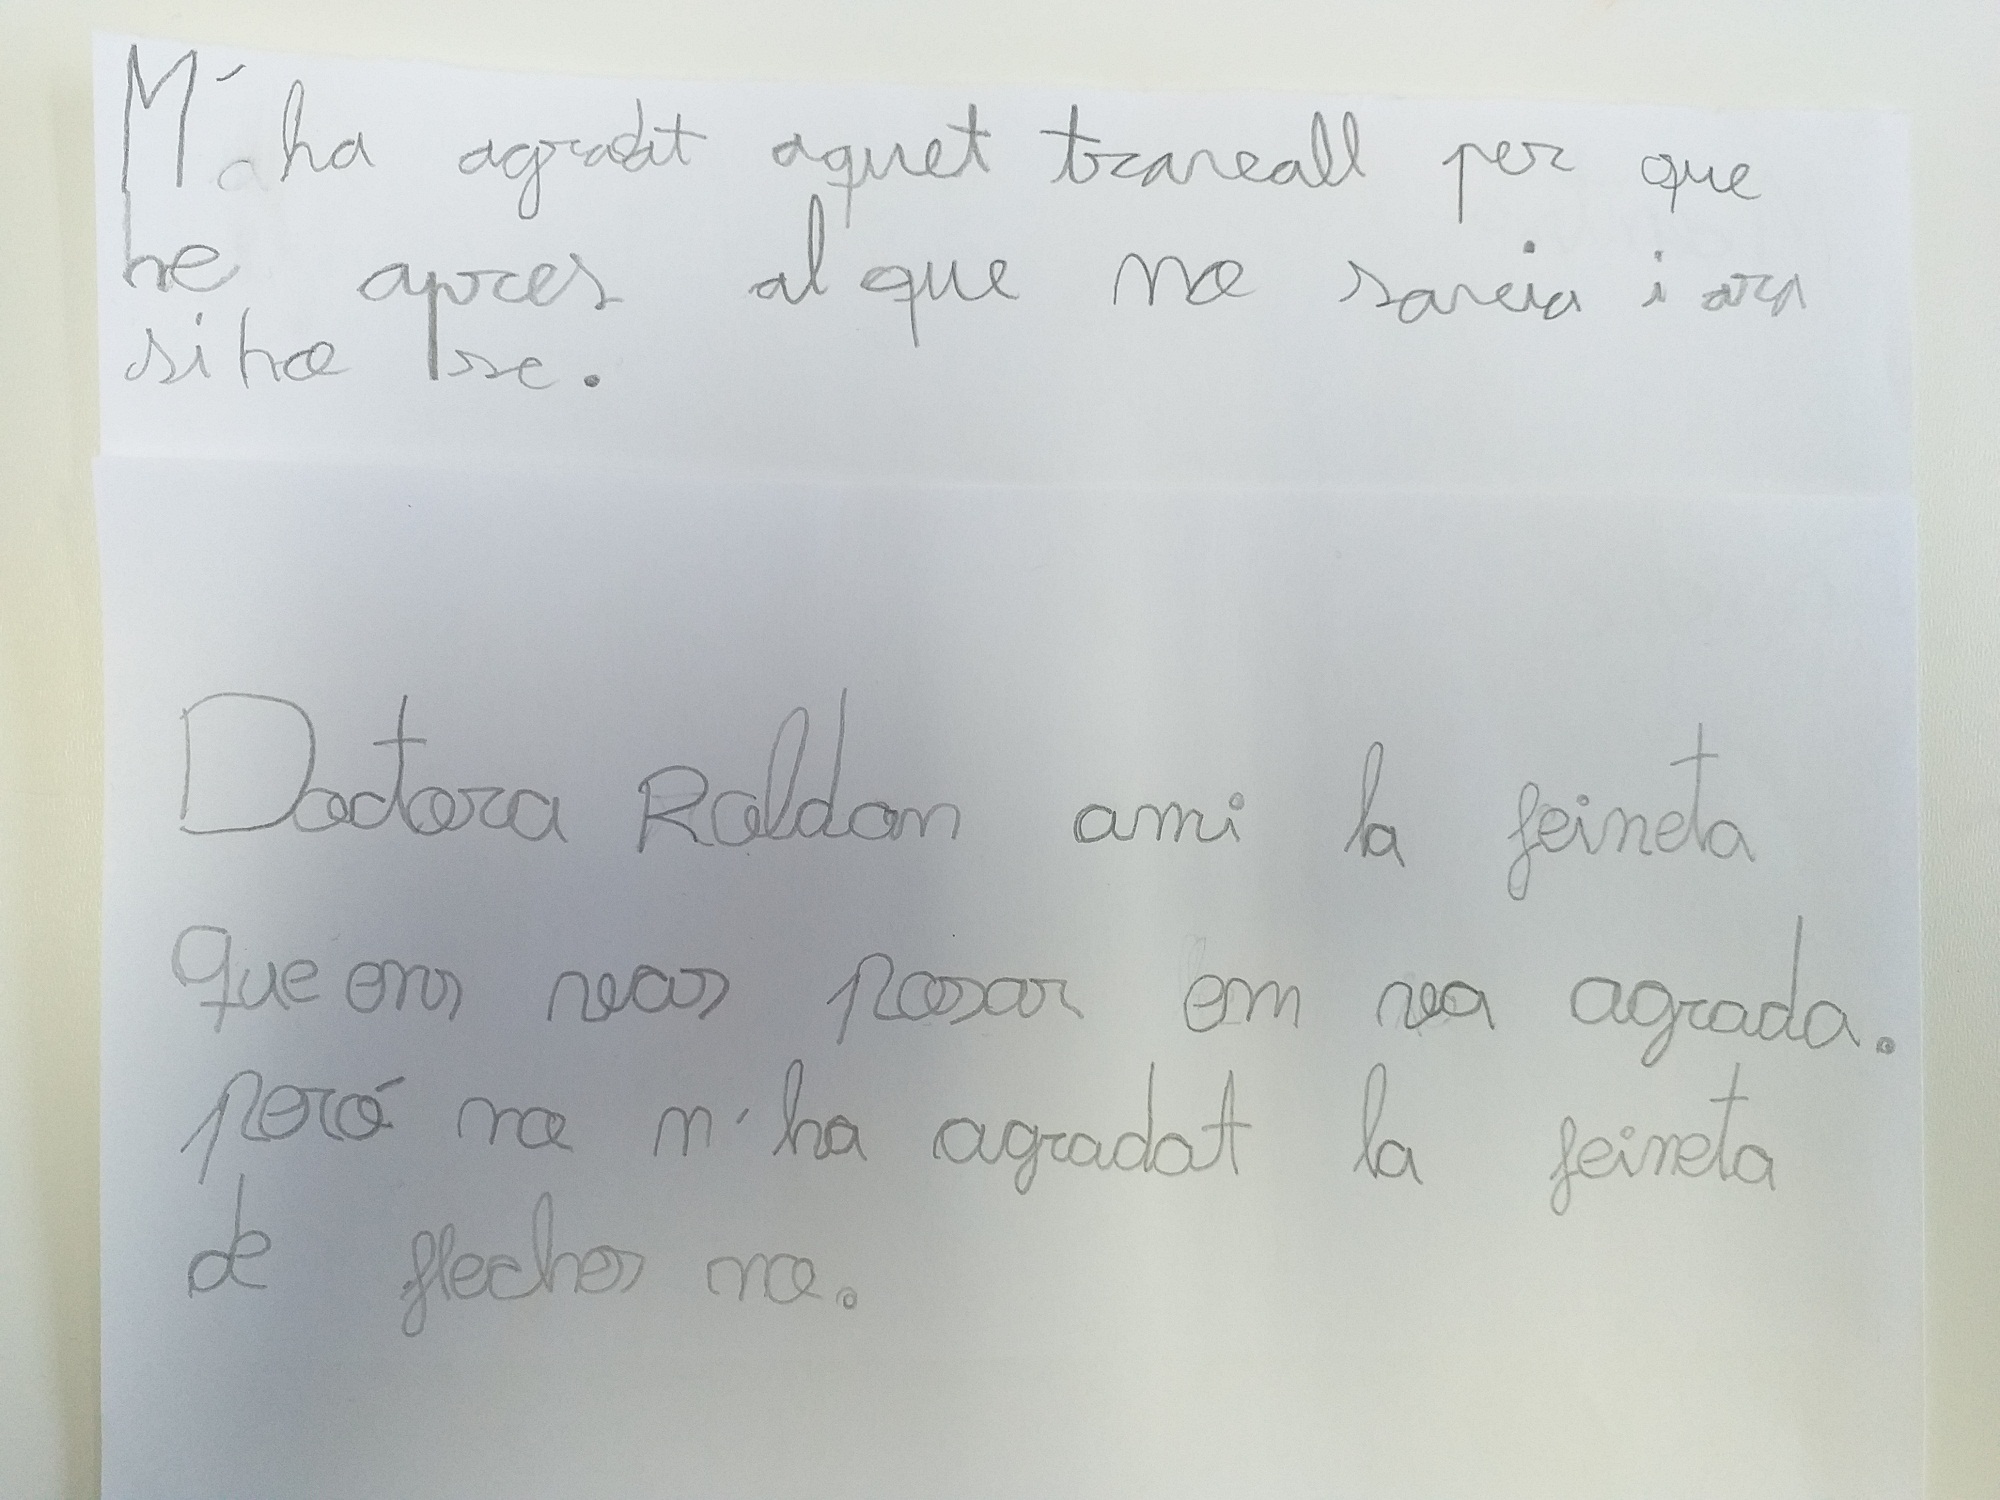 M'ha agradat aquet traveall per que
he apres al que no saveia i ara
si ho se.
Doctora Roldan ami la feineta
que ens veas posar em vea agrada.
peró no m'ha agradat la feineta
de fleches no.